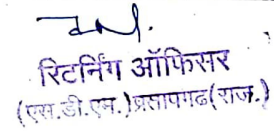 रिटर्निंग ऑफिसर
(एस.डी.एम.) प्रतापगढ (राज.)